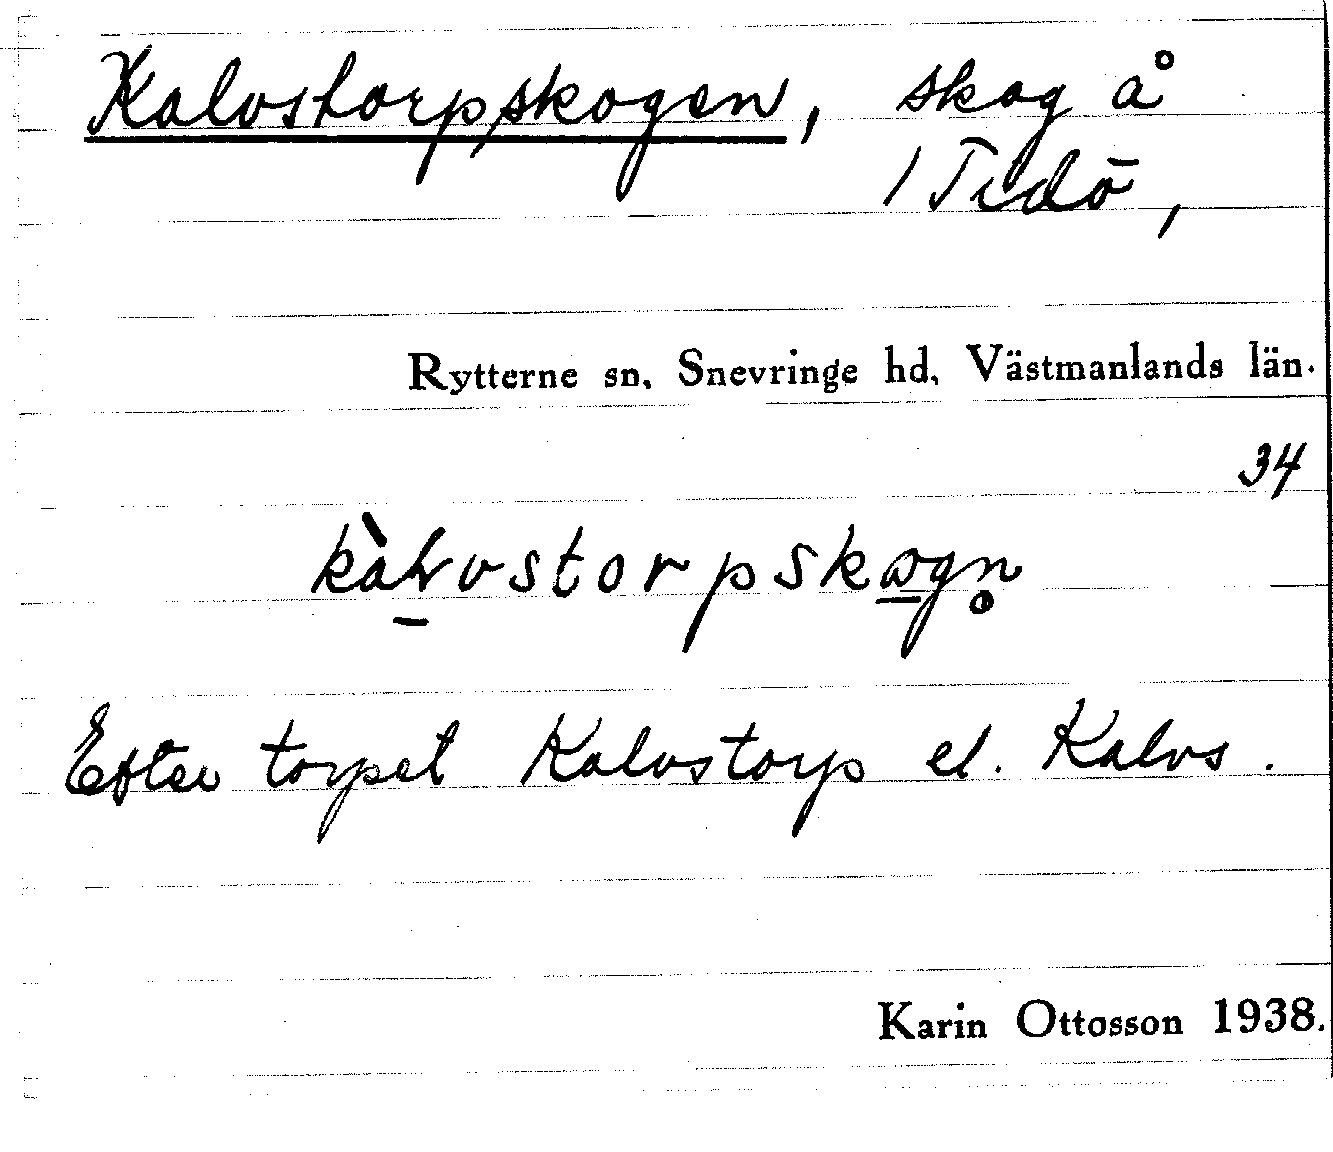 Kalvstorpskogen, skog å
/ Tidö,
Rytterne sn, Snevringe hd, Västmanlands län.
34
kàlvstorpskogn̥
Efter torpet Kalvstorp el. Kalvs.
Karin Ottosson 1938.